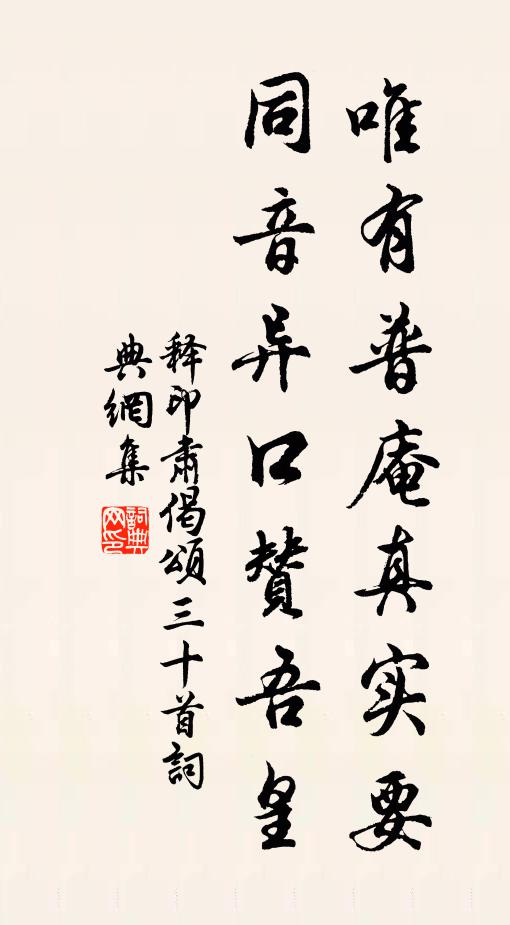 唯有普庵真实要
同音异口赞吾皇
释印肃偈颂三十首词
典網集
詞典網印